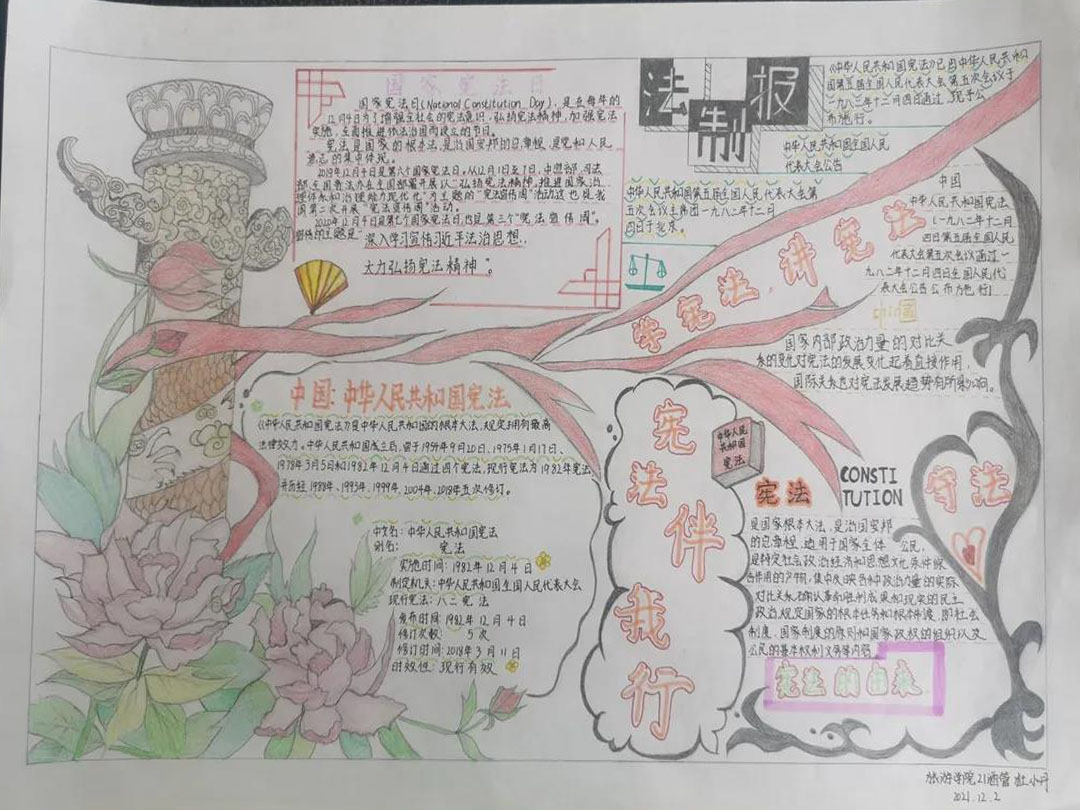 国家宪法日
国家宪法日(National Constitution Day),是在每年的
12月4日为了增强全社会的宪法意识,弘扬宪法精神,加强宪法
实施,全面推进依法治国而设立的节日。
宪法是国家的根本法,是治国安邦的总章程,是党和人民
意志的集中体现。
2019年12月4日是第六个国家宪法日,从12月1日至7日,中宣部、司法
部、全国普法办在全国部署开展以“弘扬宪法精神,推进国家治
理体系和治理能力现代化”为主题的“宪法宣传周”活动,这也是我
国第二次开展“宪法宣传周”活动。
2020年12月4日是第七个国家宪法日,也是第三个“宪法宣传周”。
宣传的主题是“深入学习宣传习近平法治思想,
大力弘扬宪法精神”。
法制报
《中华人民共和国宪法》已由中华人民共和
国第五届全国人民代表大会第五次会议于
一九八二年十二月四日通过,现予公
布施行。
中华人民共和国全国人民
代表大会公告
中华人民共和国第五届全国人民代表大会第
五次会议主席团一九八二年十二月
四日于北京。
学宪法,讲宪法
中国
中华人民共和国宪法
(一九八二年十二月
四日第五届全国人民
代表大会第五次会议通过一
九八二年十二月四日全国人民代
表大会公告公布施行)
中国
国家内部政治力量的对比关
系的变化对宪法的发展变化起着直接作用,
国际关系也对宪法发展趋势有所影响。
中国:中华人民共和国宪法
《中华人民共和国宪法》是中华人民共和国的根本大法,规定拥有最高
法律效力。中华人民共和国成立后,曾于1954年9月20日、1975年1月17日、
1978年3月5日和1982年12月4日通过四个宪法,现行宪法为1982年宪法,
并历经1988年、1993年、1999年、2004年、2018年五次修订。
中文名:中华人民共和国宪法
别名: 宪法
实施时间:1982年12月4日
制定机关:中华人民共和国全国人民代表大会
现行宪法:八二宪法
发布时间:1982年12月4日
修订次数: 5次
修订时间:2018年3月11日
时效性:现行有效
宪法伴我行
中华人民
共和国
宪法
宪法
CONSTI
TUTION
守法
是国家根本大法,是治国安邦
的总章程,适用于国家全体 公民,
是特定社会政治经济和思想文化条件综
合作用的产物,集中反映各种政治力量的实际
对比关系,确认革命胜利成果和现实的民主
政治,规定国家的根本任务和根本制度,即社会
制度、国家制度的原则和国家政权的组织以及
公民的基本权利义务等内容。
宪法的由来
旅游学院21酒管 杜小丹
2021.12.2